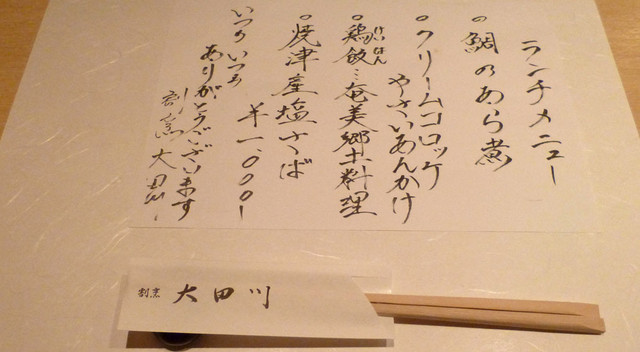 ランチメニュー
○鯛のあら煮
○クリームコロッケ
やさいあんかけ
けいはん
○鶏飯…奄美郷土料理
○焼津産塩さば
￥一、〇〇〇ー
いつもいつも
ありがとうございます
割烹 大田川
割烹 大田川